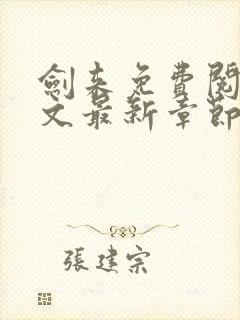 劍来免費閱
文最新章節
張建宗